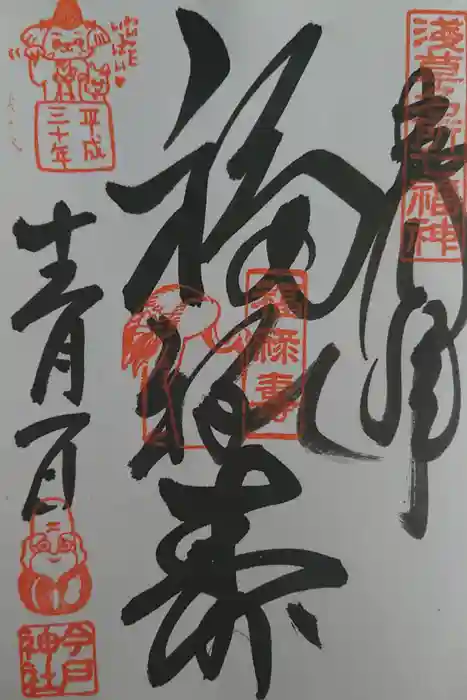 浅草名所七福神
奉拝
福禄寿
福禄寿
平成
三十年
十二月一日
今戸
神社